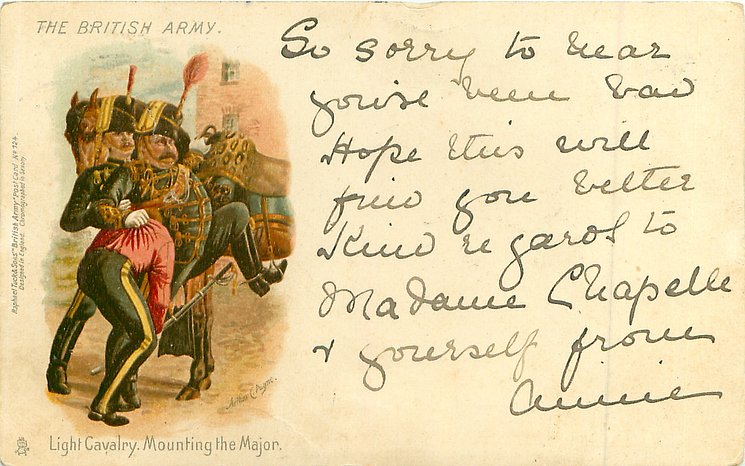 THE BRITISH ARMY.
So sorry to hear
you've been bad
Hope this will
find you better
Kind regards to
Madame Chapelle
& yourself from
Annie
Raphael Tuck & Sons' "British Army" Post Card No 724.
Designed in England. Chromographed in Saxony.
Arthur C. Payne.
Light Cavalry. Mounting the Major.